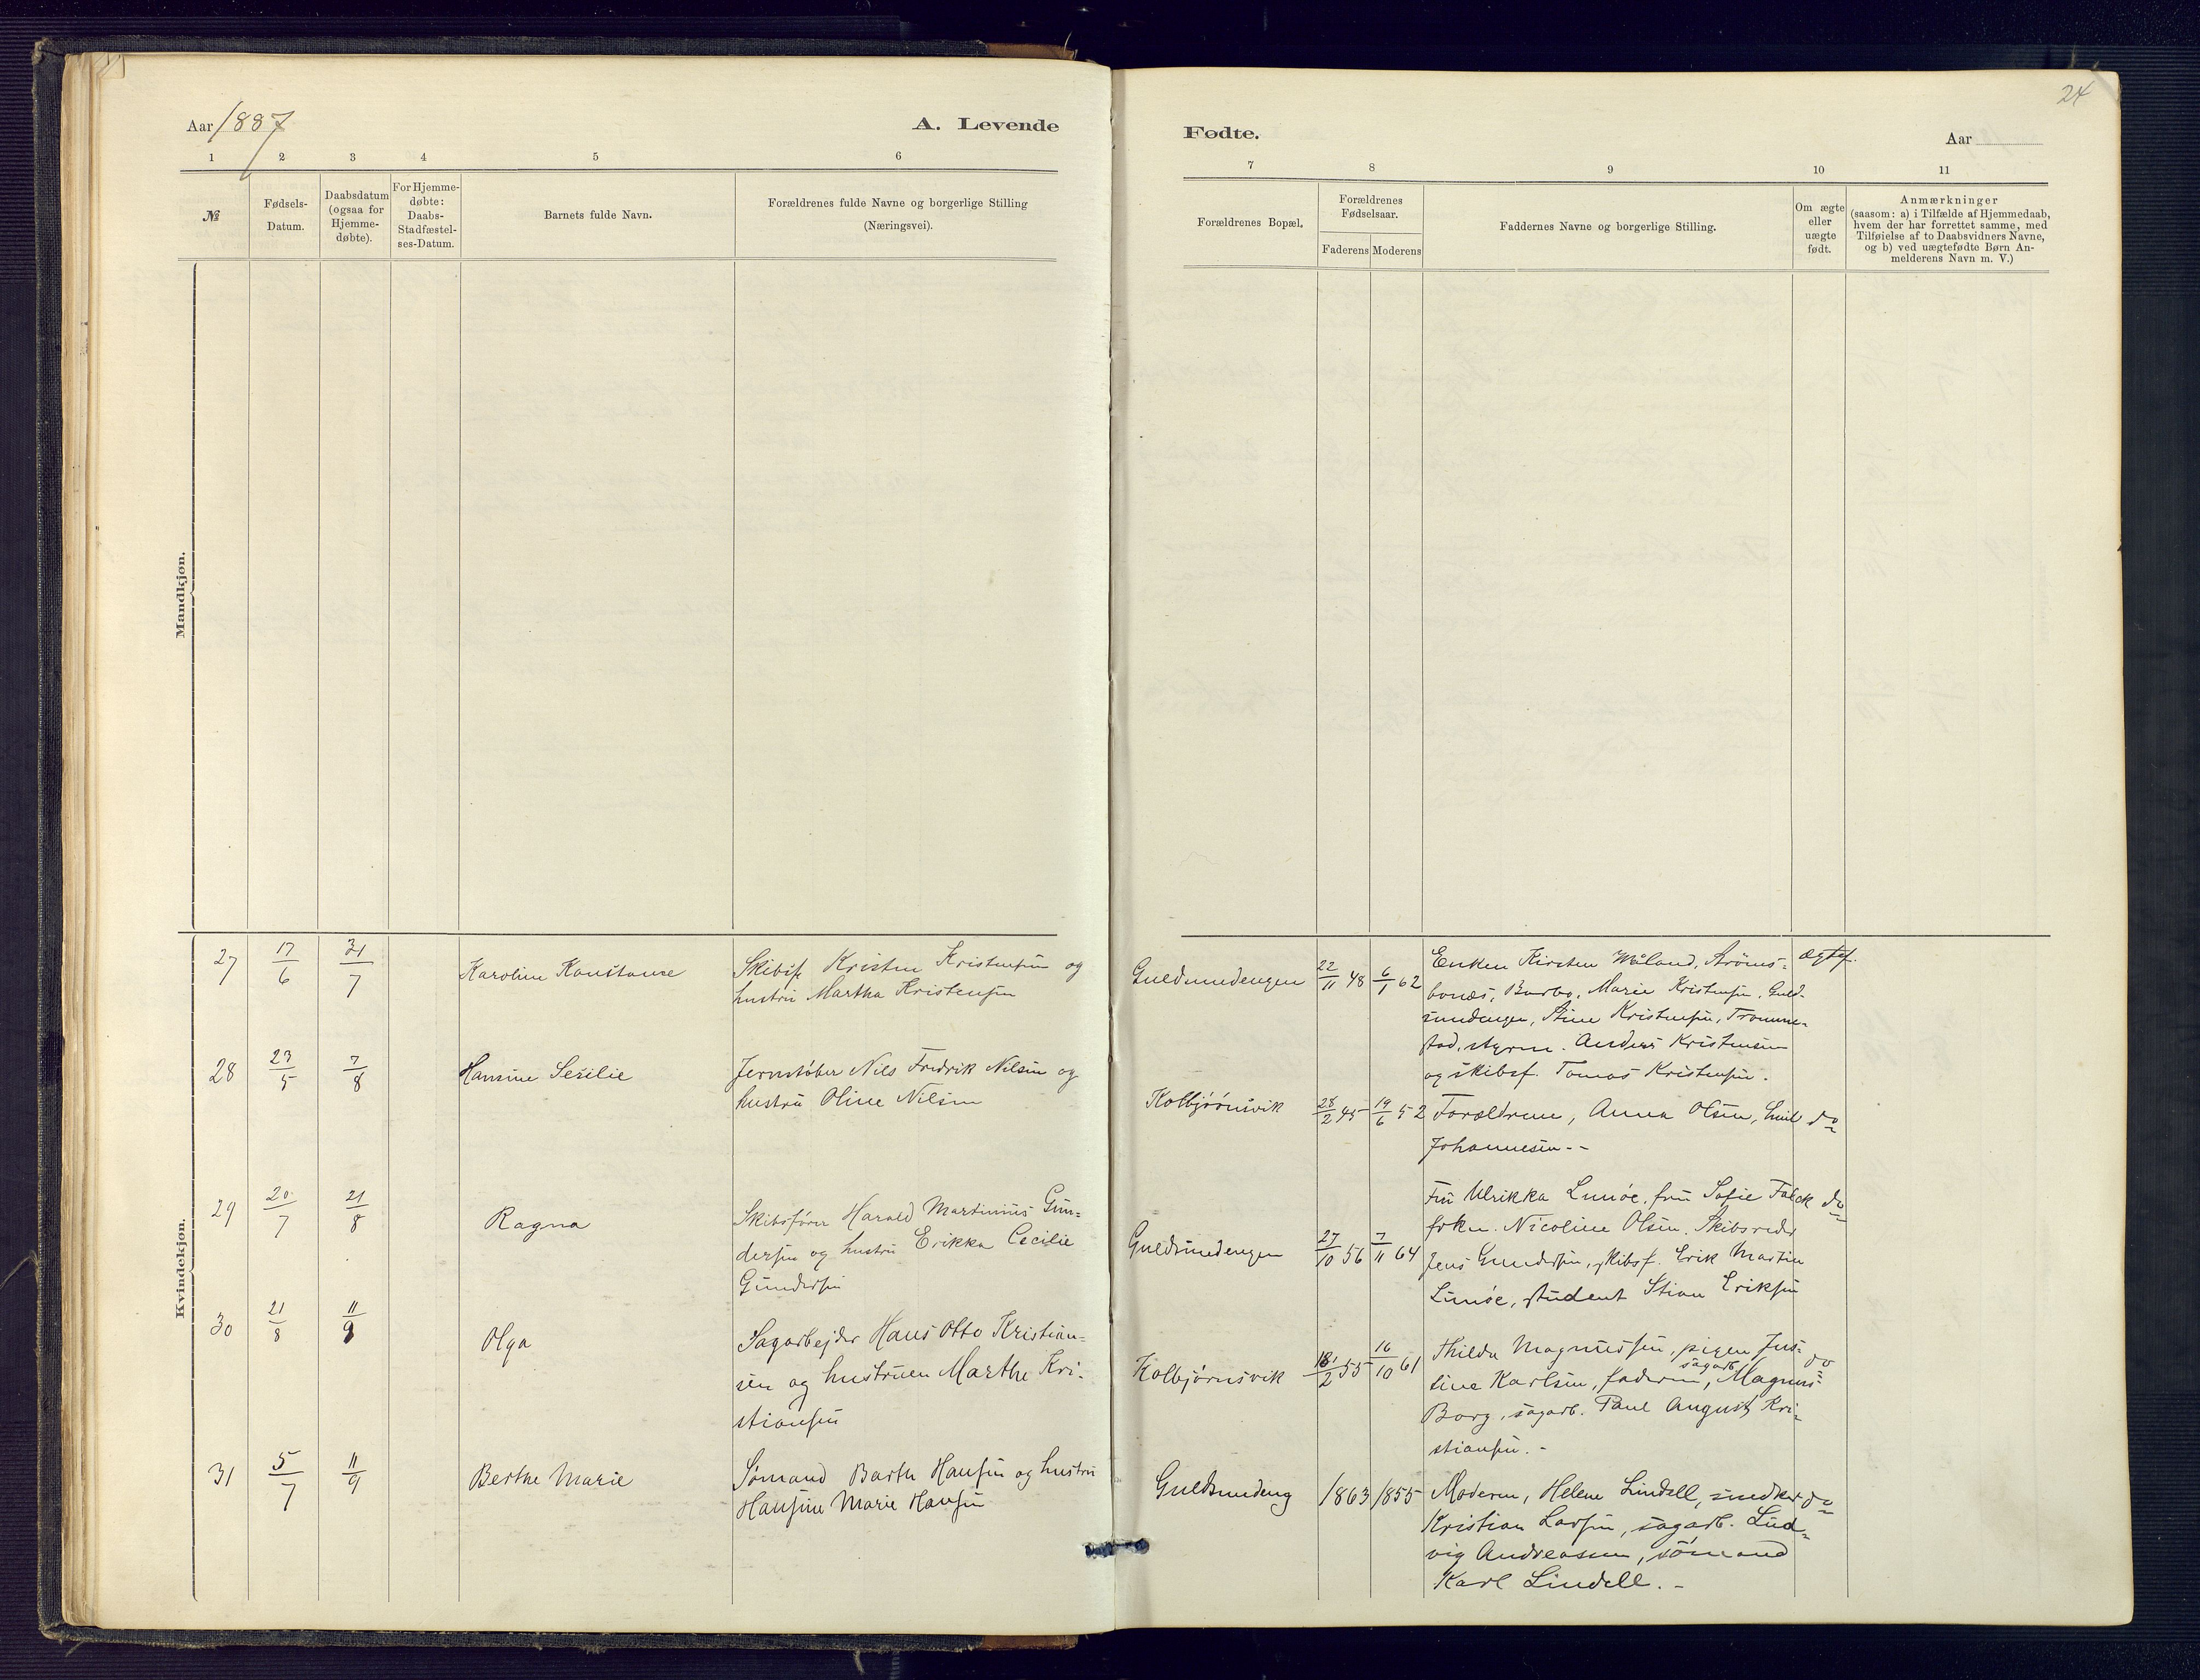 24
Aar 1887
A. Levende
Fødte.
Aar
1 2 3 4 5 6
7 8 9 10 11
№
Fødsels-
Datum.
Daabsdatum
(ogsaa for
Hjemme-
døbte).
For Hjemme-
døbte:
Daabs-
Stadfæstel-
ses-Datum.
Barnets fulde Navn.
Forældrenes fulde Navne og borgerlige Stilling
(Næringsvei).
Forældrenes Bopæl.
Forældrenes
Fødselsaar.
Faderens Moderens
Faddernes Navne og borgerlige Stilling.
Om ægte
eller
uægte
født.
Anmærkninger
(saasom: a) i Tilfælde af Hjemmedaab,
hvem der har forrettet samme, med
Tilføielse af to Daabsvidners Navne,
og b) ved uægtefødte Børn An-
melderens Navn m. V.)
Mandkjøn.
Kvindekjøn.
27 17/6 31/7 Karoline Konstanse
Skibsf. Kristen Kristensen og
hustru Martha Kristensen
Guldsmedengen 22/11 48 6/1 62
Enken Kirsten Måland, Strøms-
bonæs, Barbo, Marie Kristensen, Guld-
smedengen, Stine Kristensen, Tromme-
stad, styrm. Anders Kristensen
og skibsf. Tomas Kristensen.
Ægtef.
28 23/5 7/8 Hansine Sesilie
Jernstøber Nils Fredrik Nilsen og
hustru Oline Nilsen
Kolbjørnsvik 28/2 45 19/6 52
Forældrene, Anna Olsen, Emil
Johannesen.-
do
29 20/7 21/8 Ragna
Skibsfører Harald Martinius Gun-
dersen og hustru Erikka Cecilie
Gundersen
Guldsmedengen 27/10 56 7/11 64
Fru Ulrikka Lunøe, fru Sofie Falck
frkn. Nicoline Olsen, Skibsreder
Jens Gundersen, skibsf. Erik Martin
Lunøe, student Stian Eriksen
do
30 21/8 11/9 Olga
Sagarbejder Hans Otto Kristian-
sen og hustruen Marthe Kri-
stiansen
Kolbjørnsvik 18/2 55 16/10 61
Thilda Magnussen, pigen Jus-
tine Karlsen, faderen, sagarb. Magnus
Borg, sagarb. Paul August Kri-
stiansen.-
do
31 5/7 11/9 Berthe Marie
Sømand Barth Hansen og hustru
Hansine Marie Hansen
Guldsmedeng 1863 1855
Moderen, Helene Lindell, snedker
Kristian Larsen, sagarb. Lud-
vig Andreasen, sømand
Karl Lindell.-
do